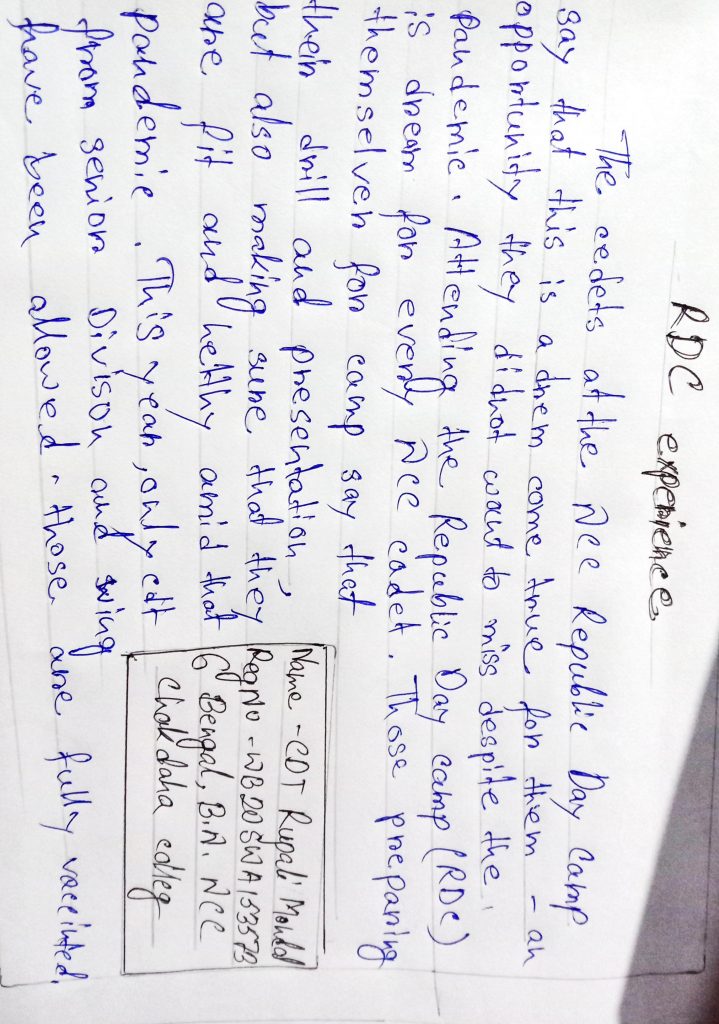 RDC experience.
The cedets at the Ncc Republic Day Camp
say that this is a drem come true for them - an
opportunity they didnot want to miss despite the
Pandemic. Attending the Republic Day camp (RDC)
is dream for every Ncc cadet. Those preparing
themselves for camp say that
their drill and presentation,
but also making sure that they
are fit and helthy amid that
pandemic. This year, only cdt
from senior Divison and wing
have been allowed. those are fully vaccinted.
Name - CDT Rupali Mondal
Reg No - WB20SWA153573
6 Bengal, B.N. NCC
Chakdaha colleg